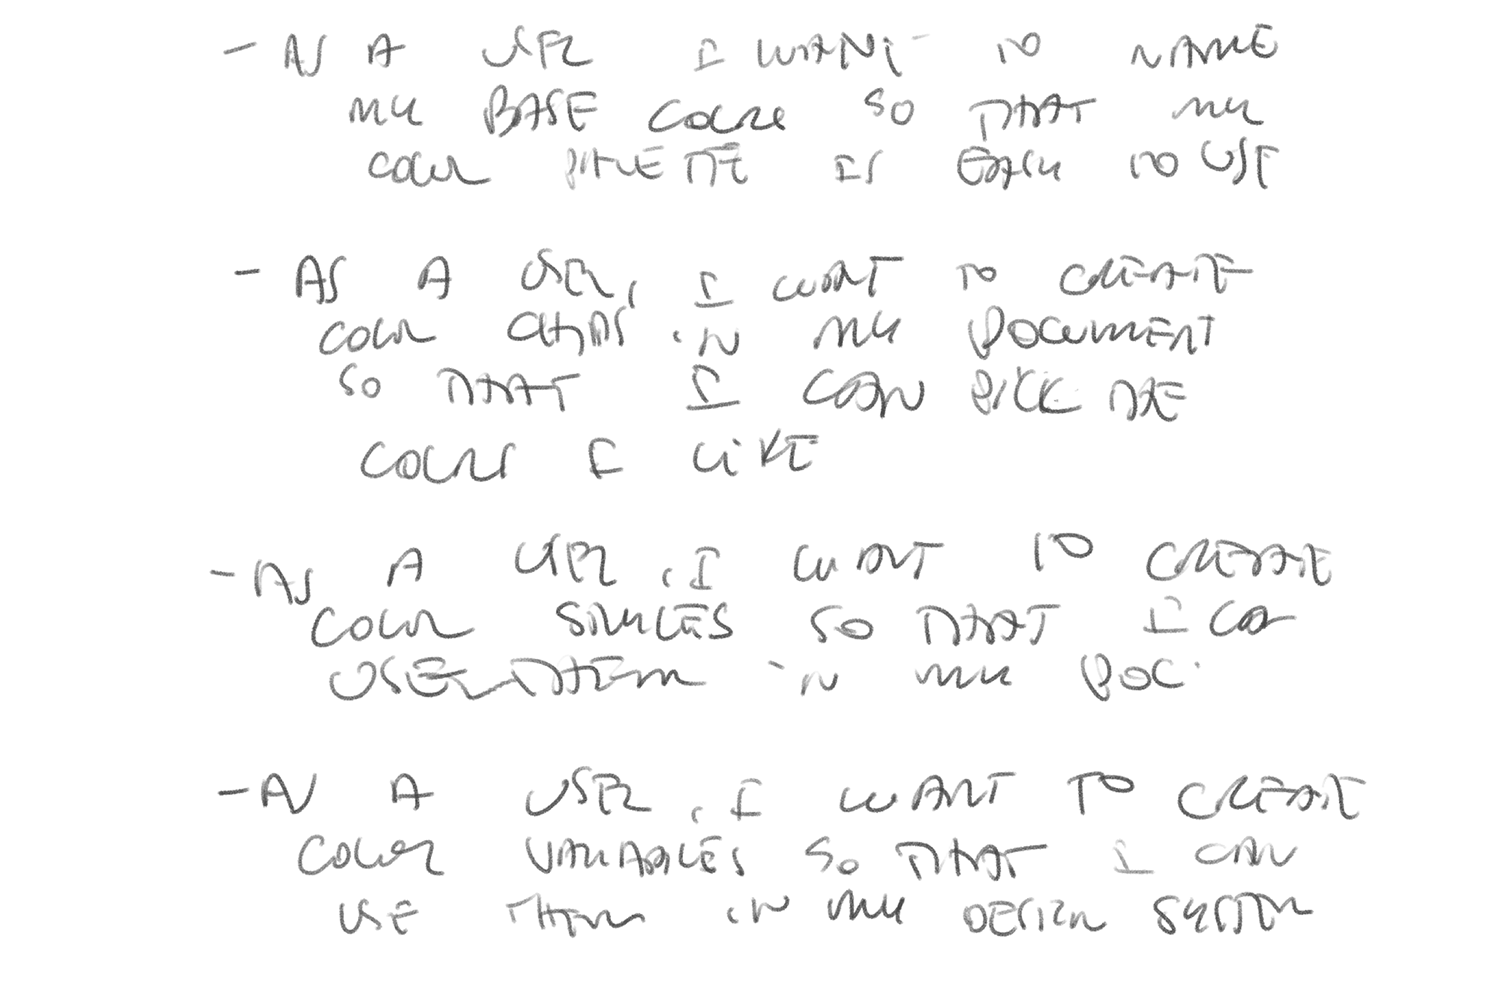 - AS A USER I WANT TO NAME
MY BASE COLORS SO THAT MY
COLOR PALETTE IS EASY TO USE
- AS A USER, I WANT TO CREATE
COLOR CHIPS IN MY DOCUMENT
SO THAT I CAN PICK THE
COLORS I LIKE
- AS A USER, I WANT TO CREATE
COLOR STYLES SO THAT I CAN
USE THEM IN MY DOC.
- AS A USER, I WANT TO CREATE
COLOR VARIABLES SO THAT I CAN
USE THEM IN MY DESIGN SYSTEM